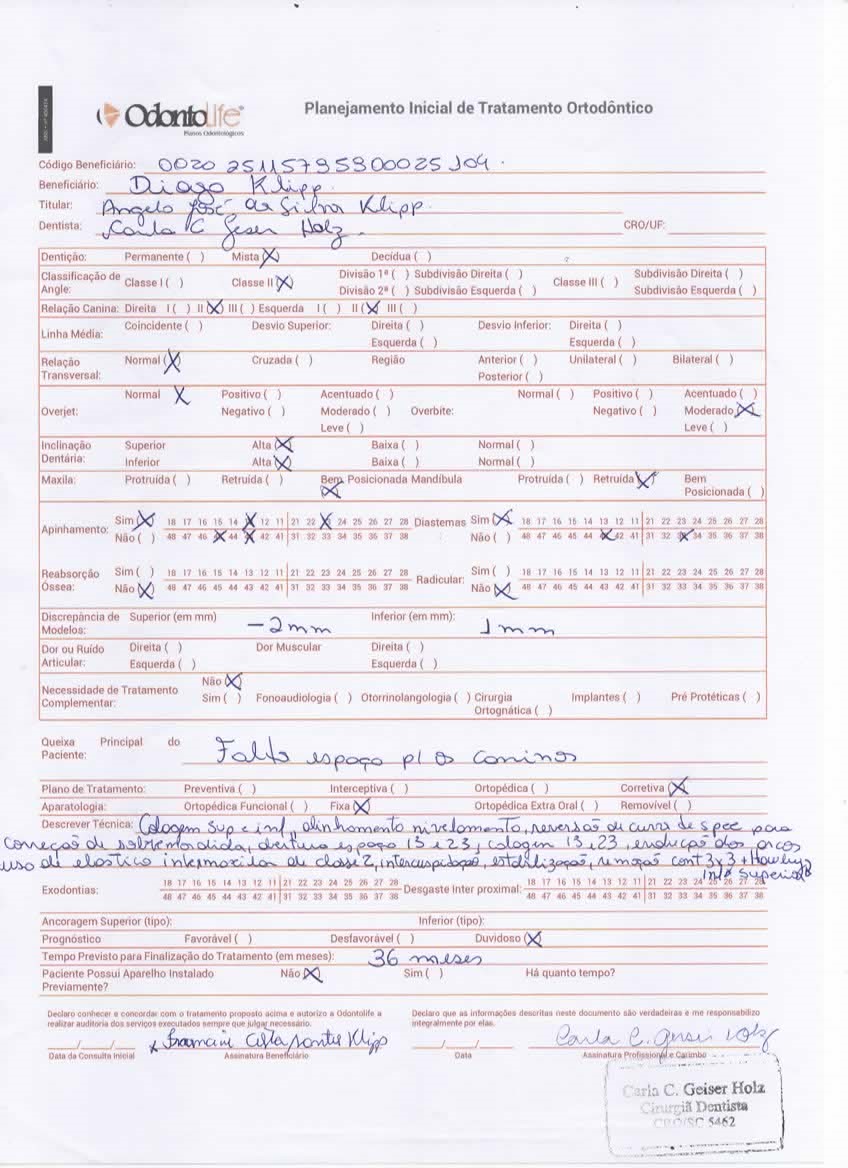 OdontoLife
Planos Odontológicos
Planejamento Inicial de Tratamento Ortodôntico
Código Beneficiário: 0020 25115795900025 104.
Beneficiário: Diogo Klipp.
Titular: Angelo José da Silva Klipp.
Dentista: Carla C Geser Holz. CRO/UF:
Dentição: Permanente ( ) Mista (X) Decídua ( )
Classificação de Angle: Classe I ( ) Classe II (X) Divisão 1ª ( ) Subdivisão Direita ( ) Classe III ( ) Subdivisão Direita ( )
Divisão 2ª ( ) Subdivisão Esquerda ( ) Subdivisão Esquerda ( )
Relação Canina: Direita I ( ) II (X) III ( ) Esquerda I ( ) II (X) III ( )
Linha Média: Coincidente ( ) Desvio Superior: Direita ( ) Desvio Inferior: Direita ( )
Esquerda ( ) Esquerda ( )
Relação Transversal: Normal (X) Cruzada ( ) Região Anterior ( ) Unilateral ( ) Bilateral ( )
Posterior ( )
Overjet: Normal X Positivo ( ) Acentuado ( ) Overbite: Normal ( ) Positivo ( ) Acentuado ( )
Negativo ( ) Moderado ( ) Negativo ( ) Moderado (X)
Leve ( ) Leve ( )
Inclinação Dentária: Superior Alta (X) Baixa ( ) Normal ( )
Inferior Alta (X) Baixa ( ) Normal ( )
Maxila: Protruída ( ) Retruída ( ) Bem Posicionada (X) Mandíbula Protruída ( ) Retruída (X) Bem Posicionada ( )
Apinhamento: Sim (X) 18 17 16 15 14 X 12 11 21 22 X 24 25 26 27 28 Diastemas Sim (X) 18 17 16 15 14 13 12 11 21 22 23 24 25 26 27 28
Não ( ) 48 47 46 X 44 X 42 41 31 32 33 34 35 36 37 38 Não ( ) 48 47 46 45 44 X 42 41 31 32 X 34 35 36 37 38
Reabsorção Óssea: Sim ( ) 18 17 16 15 14 13 12 11 21 22 23 24 25 26 27 28 Radicular: Sim ( ) 18 17 16 15 14 13 12 11 21 22 23 24 25 26 27 28
Não (X) 48 47 46 45 44 43 42 41 31 32 33 34 35 36 37 38 Não (X) 48 47 46 45 44 43 42 41 31 32 33 34 35 36 37 38
Discrepância de Modelos: Superior (em mm) -2mm Inferior (em mm): 1mm
Dor ou Ruído Articular: Direita ( ) Dor Muscular Direita ( )
Esquerda ( ) Esquerda ( )
Necessidade de Tratamento Complementar: Não (X)
Sim ( ) Fonoaudiologia ( ) Otorrinolangologia ( ) Cirurgia Ortognática ( ) Implantes ( ) Pré Protéticas ( )
Queixa Principal do Paciente: Falta espaço p/ os caninos
Plano de Tratamento: Preventiva ( ) Interceptiva ( ) Ortopédica ( ) Corretiva (X)
Aparatologia: Ortopédica Funcional ( ) Fixa (X) Ortopédica Extra Oral ( ) Removível ( )
Descrever Técnica: Colagem sup e inf, alinhamento nivelamento, reversão de curva de spee para
correção de sobremordida, abertura espaço 13 e 23, colagem 13, 23, evolução dos arcos
uso de elastico intermaxilar de classe 2, intercuspidação, estabilização, remoção cont 3x3 + Hawley
Inf e superior
Exodontias: 18 17 16 15 14 13 12 11 21 22 23 24 25 26 27 28 Desgaste Inter proximal: 18 17 16 15 14 13 12 11 21 22 23 24 25 26 27 28
48 47 46 45 44 43 42 41 31 32 33 34 35 36 37 38 48 47 46 45 44 43 42 41 31 32 33 34 35 36 37 38
Ancoragem Superior (tipo): Inferior (tipo):
Prognóstico Favorável ( ) Desfavorável ( ) Duvidoso (X)
Tempo Previsto para Finalização do Tratamento (em meses): 36 meses
Paciente Possui Aparelho Instalado Previamente? Não (X) Sim ( ) Há quanto tempo?
Declaro conhecer e concordar com o tratamento proposto acima e autorizo a Odontolife a
realizar auditoria dos serviços executados sempre que julgar necessário.
Declaro que as informações descritas neste documento são verdadeiras e me responsabilizo
integralmente por elas.
Klipp
Carla C. Geiser Holz
__/__/__ Data da Consulta Inicial Assinatura Beneficiário __/__/__ Data Assinatura Profissional e Carimbo
Carla C. Geiser Holz
Cirurgiã Dentista
CRO/SC 5462